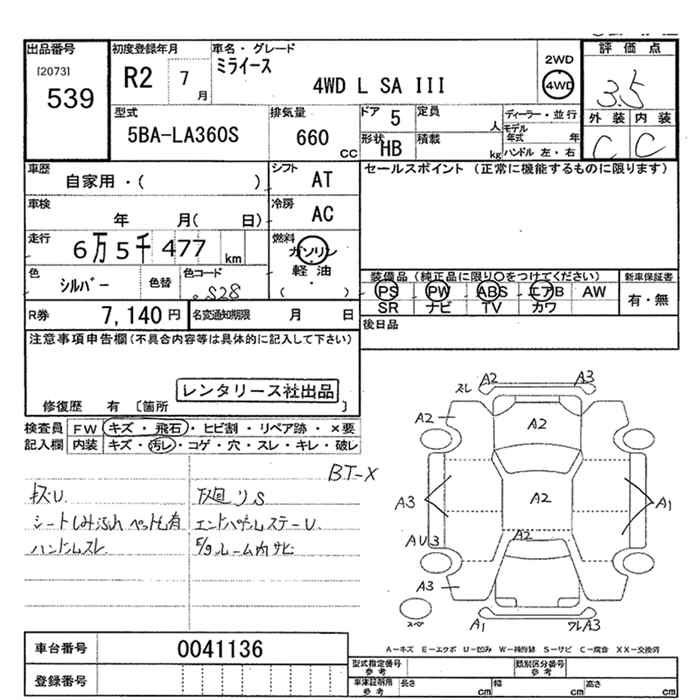 出品番号
[2073]
539
初度登録年月
R2 7月
車名・グレード
ミライース
4WD L SA III
2WD
4WD
評価点
3.5
外装 内装
C C
型式
5BA-LA360S
排気量
660 CC
ドア 5
定員 人
形状 HB
積載 kg
ディーラー・並行
モデル年式 年
ハンドル 左・右
車歴
自家用・( )
シフト AT
車検
年 月( 日)
冷房 AC
走行
6万5千477 km
燃料
ガソリン
軽油
( )
色
シルバー
色替
色コード
S28
R券 7,140円
名変通知期限 月 日
セールスポイント (正常に機能するものに限ります)
装備品 (純正品に限り○をつけてください)
PS PW ABS エアB AW
SR ナビ TV カワ
新車保証書
有・無
後日品
注意事項申告欄(不具合内容等は具体的に記入して下さい)
レンタリース社出品
修復歴 有 [箇所 ]
検査員記入欄
FW キズ・飛石・ヒビ割・リペア跡・×要
内装 キズ・汚レ・コゲ・穴・スレ・キレ・破レ
BT-X
キズU
下廻リS
シートしみ汚れ ペットも有
ハンドルスレ
スレ A2 A3
A2 A2
A3 A2 A1
AU3 A2
A3
A1 A3
A-キズ E-エクボ U-凹み W-補修跡 S-サビ C-腐食 XX-交換済
車台番号 0041136
登録番号
型式指定番号 参考
類別区分番号 参考
車体証明用 参考
長さ cm 幅 cm 高さ cm